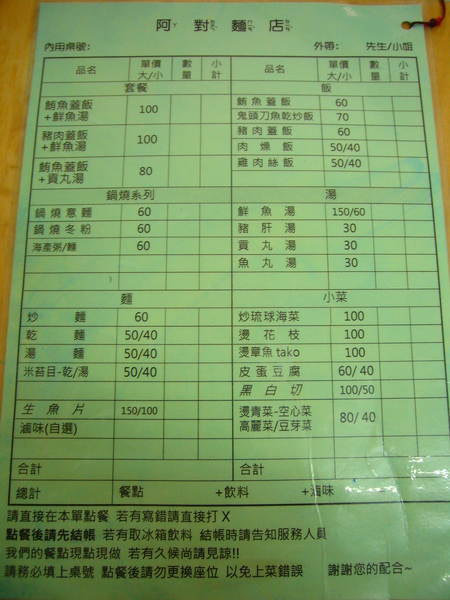 阿對麵店
內用桌號: 外帶: 先生/小姐
品名 單價 大/小 數量 小計 品名 單價 大/小 數量 小計
套餐
鮪魚蓋飯+鮮魚湯 100
豬肉蓋飯+鮮魚湯 100
鮪魚蓋飯+貢丸湯 80
鍋燒系列
鍋燒意麵 60
鍋燒冬粉 60
海產粥/麵 60
麵
炒麵 60
乾麵 50/40
湯麵 50/40
米苔目-乾/湯 50/40
生魚片 150/100
滷味(自選)
合計
飯
鮪魚蓋飯 60
鬼頭刀魚乾炒飯 70
豬肉蓋飯 60
肉燥飯 50/40
雞肉絲飯 50/40
湯
鮮魚湯 150/60
豬肝湯 30
貢丸湯 30
魚丸湯 30
小菜
炒琉球海菜 100
燙花枝 100
燙章魚tako 100
皮蛋豆腐 60/40
黑白切 100/50
燙青菜-空心菜
高麗菜/豆芽菜 80/40
合計
總計 餐點 +飲料 +滷味
請直接在本單點餐 若有寫錯請直接打X
點餐後請先結帳 若有取冰箱飲料 結帳時請告知服務人員
我們的餐點現點現做 若有久候尚請見諒!!
請務必填上桌號 點餐後請勿更換座位 以免上菜錯誤 謝謝您的配合~